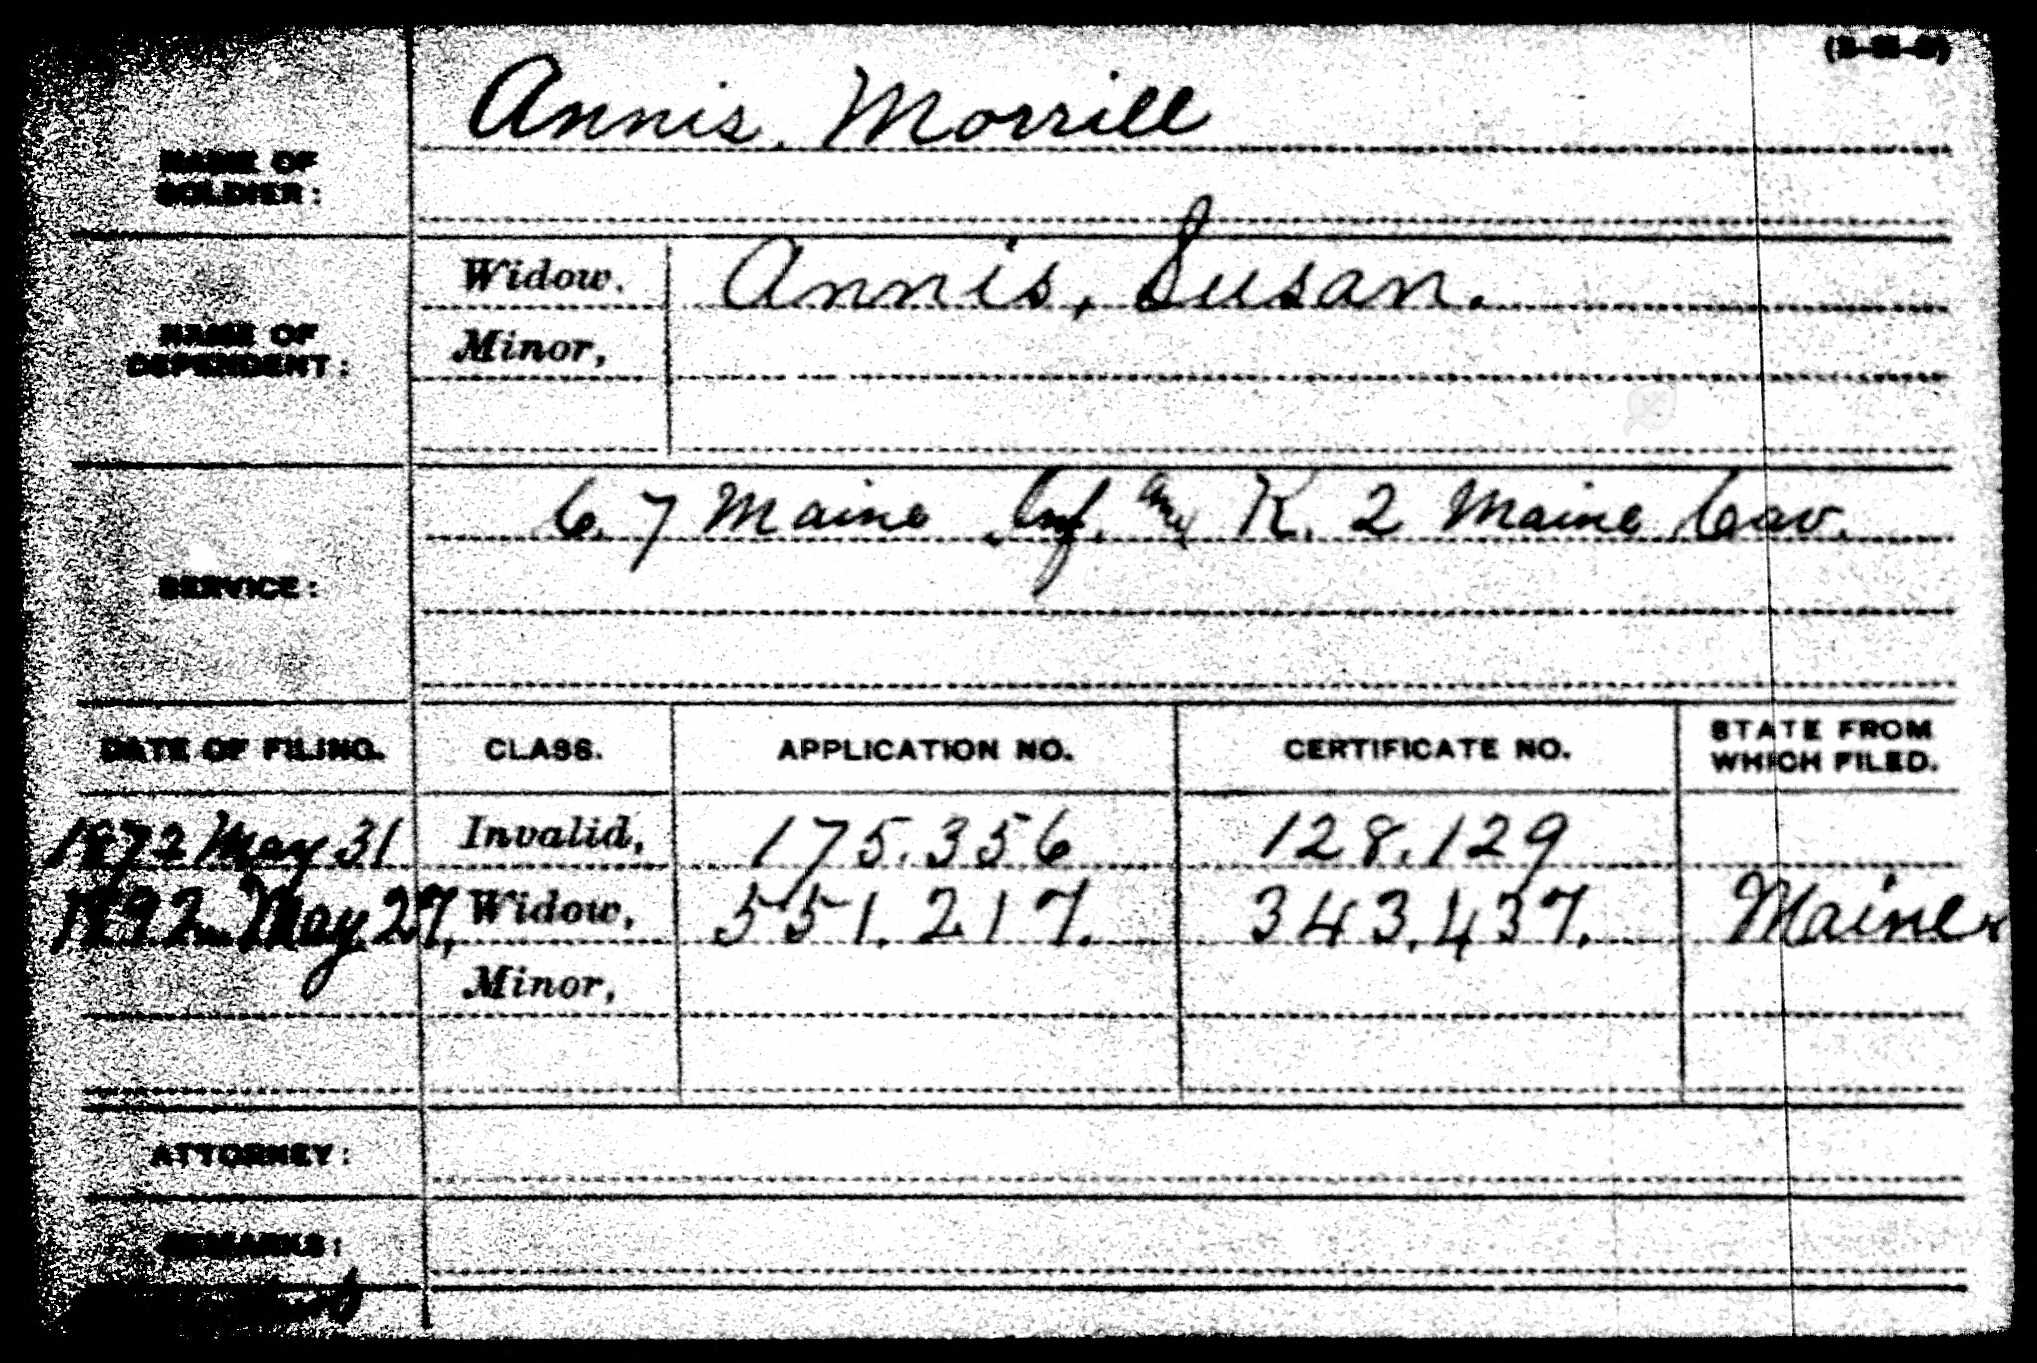 Annis, Morrill
NAME OF
SOLDIER:
Widow. Annis, Susan.
Minor,
NAME OF
DEPENDENT:
C. 7 Maine Inf. and K. 2 Maine Cav.
SERVICE:
DATE OF FILING. CLASS. APPLICATION NO. CERTIFICATE NO. STATE FROM
WHICH FILED.
1872 May 31 Invalid, 175.356 128.129
1892 May 27, Widow, 551.217. 343.437. Maine
Minor,
ATTORNEY:
REMARKS: